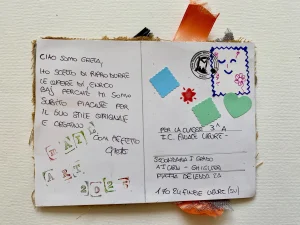 CIAO SONO GRETA,
HO SCELTO DI RIPRODURRE
LE OPERE DI ENRICO
BAJ PERCHÉ MI SONO
SUBITO PIACIUTE PER
IL SUO STILE ORIGINALE
E CREATIVO
CON AFFETTO
Greta
MAIL
ART
2021
PER LA CLASSE 3ªA
I.C. FINALE LIGURE-
SECONDARIA I GRADO
AICARDI - GHIGLIERI